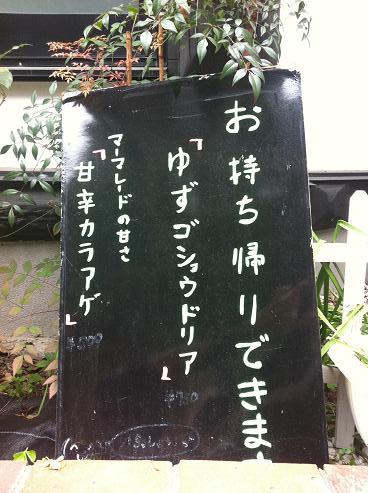 お持ち帰りできます
「ゆずゴショウドリア」
マーマレードの甘さ
「甘辛カラアゲ」